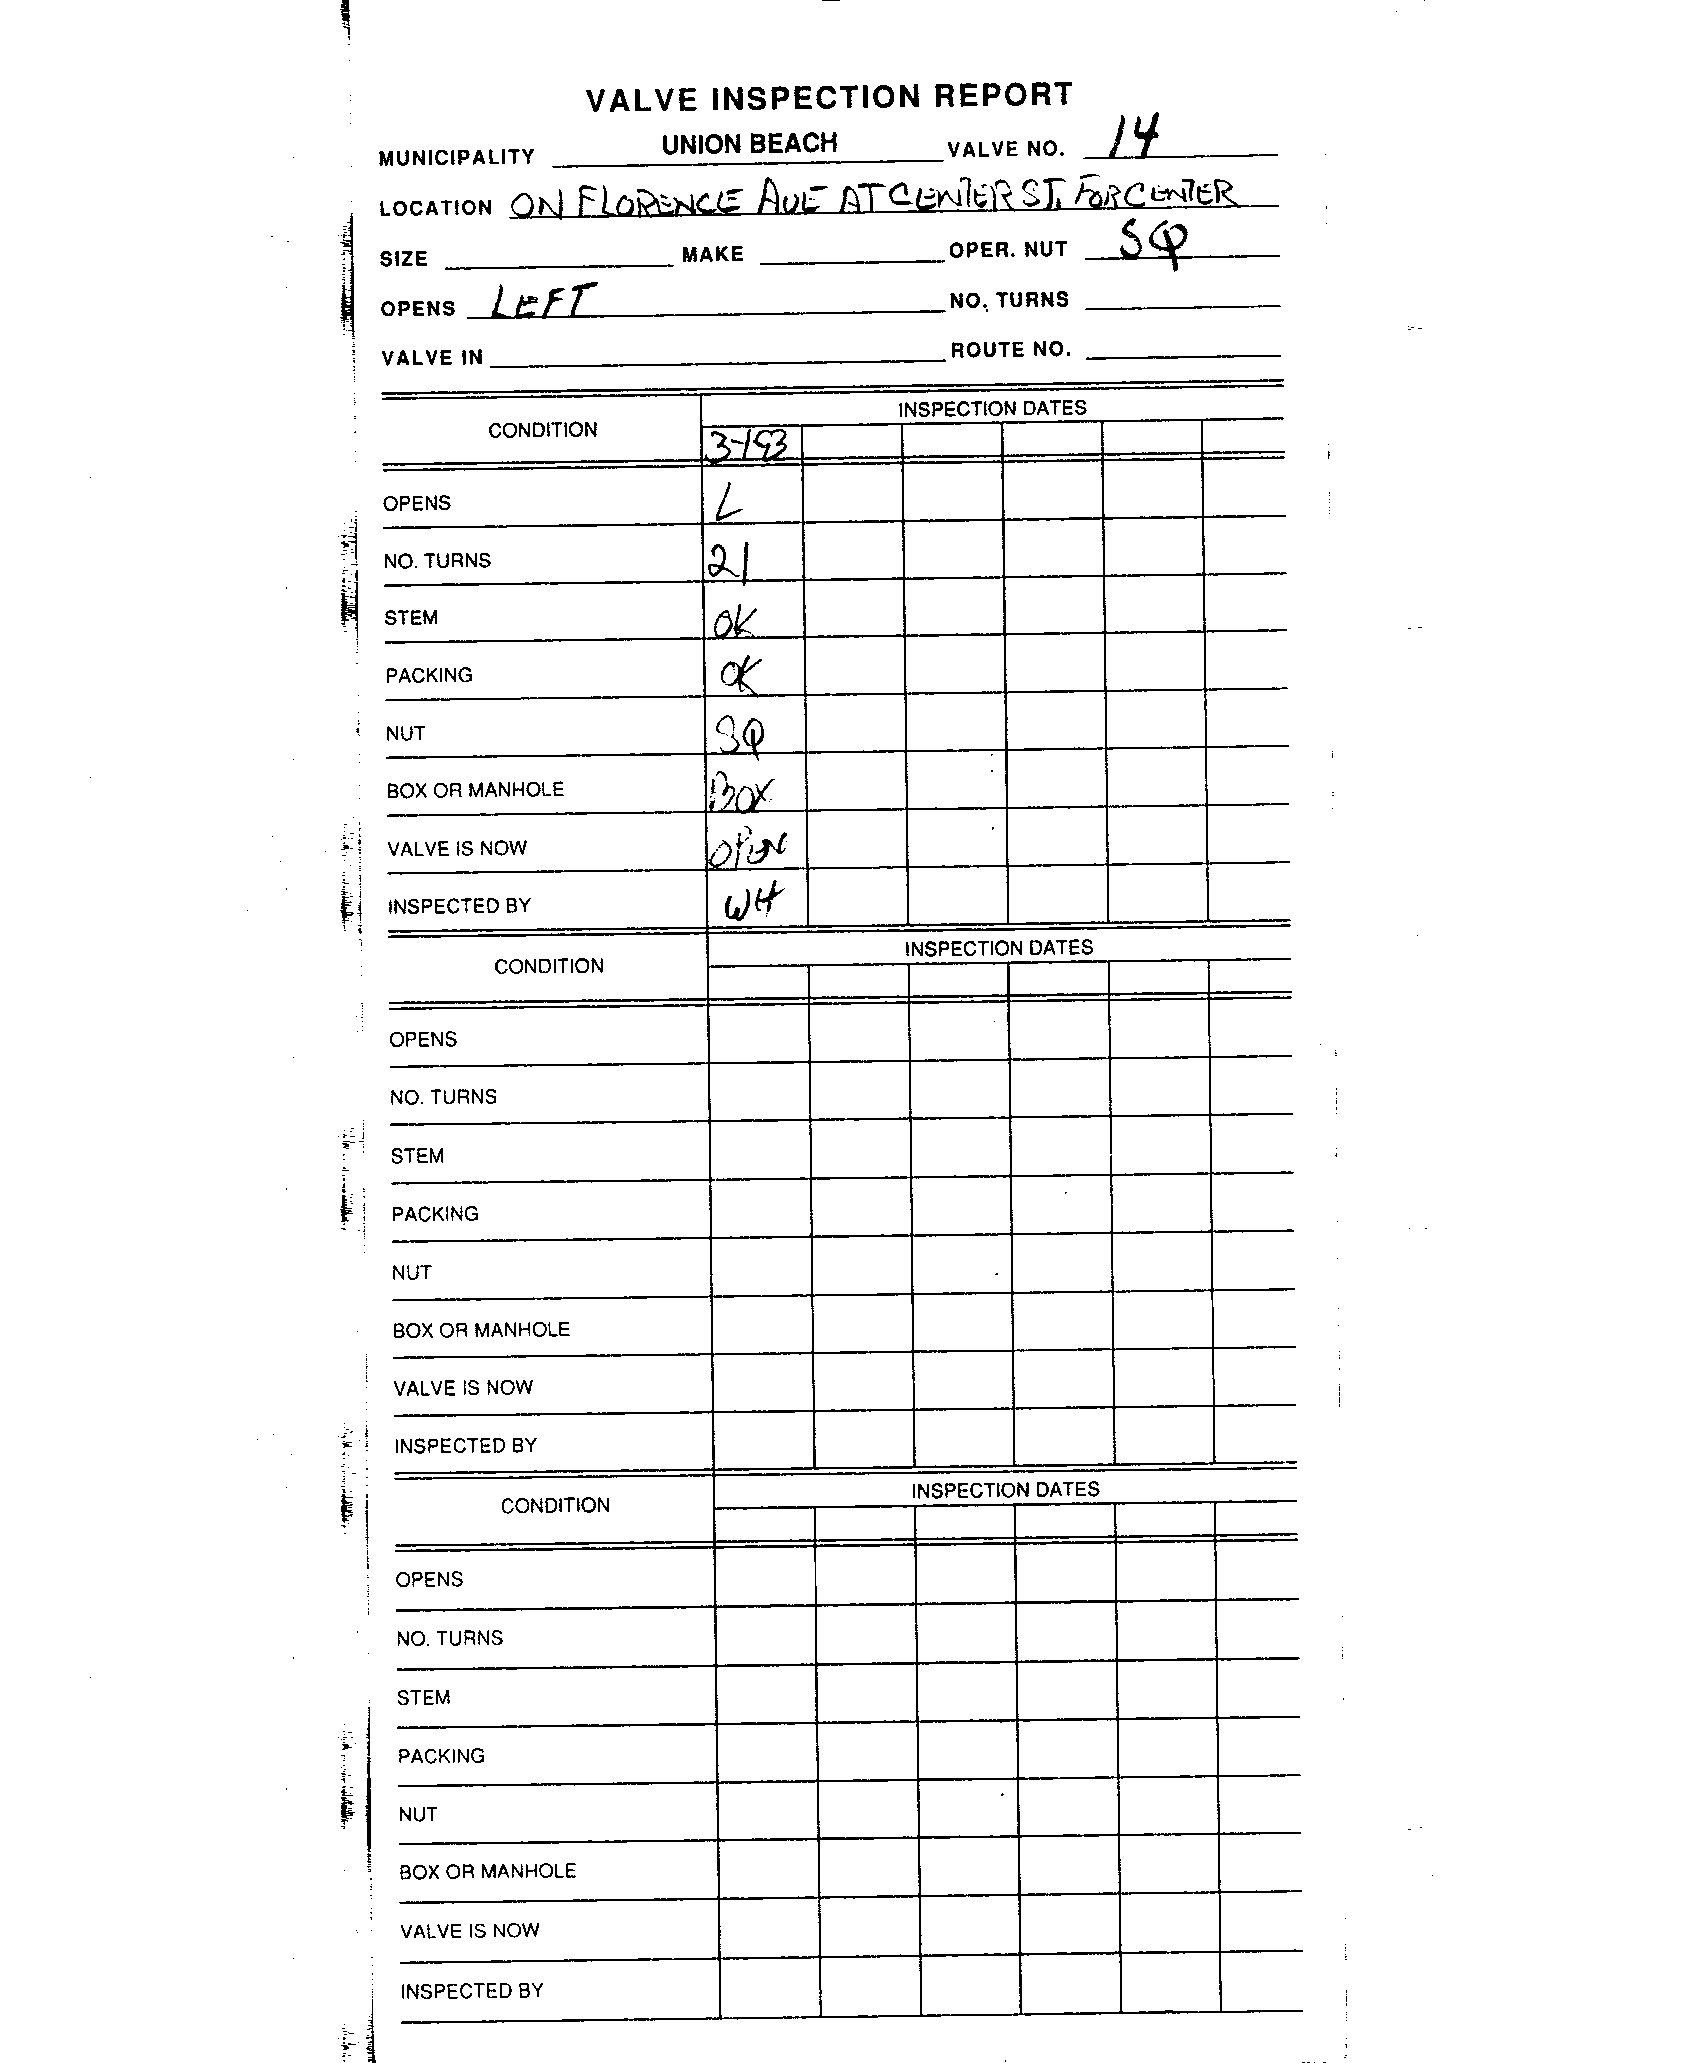 VALVE INSPECTION REPORT
MUNICIPALITY UNION BEACH VALVE NO. 14
LOCATION ON FLORENCE AVE AT CENTER ST. FOR CENTER
SIZE MAKE OPER. NUT SQ
OPENS LEFT NO. TURNS
VALVE IN ROUTE NO.
CONDITION INSPECTION DATES
3-193
OPENS L
NO. TURNS 21
STEM OK
PACKING OK
NUT SQ
BOX OR MANHOLE BOX
VALVE IS NOW OPEN
INSPECTED BY WH
CONDITION INSPECTION DATES
OPENS
NO. TURNS
STEM
PACKING
NUT
BOX OR MANHOLE
VALVE IS NOW
INSPECTED BY
CONDITION INSPECTION DATES
OPENS
NO. TURNS
STEM
PACKING
NUT
BOX OR MANHOLE
VALVE IS NOW
INSPECTED BY